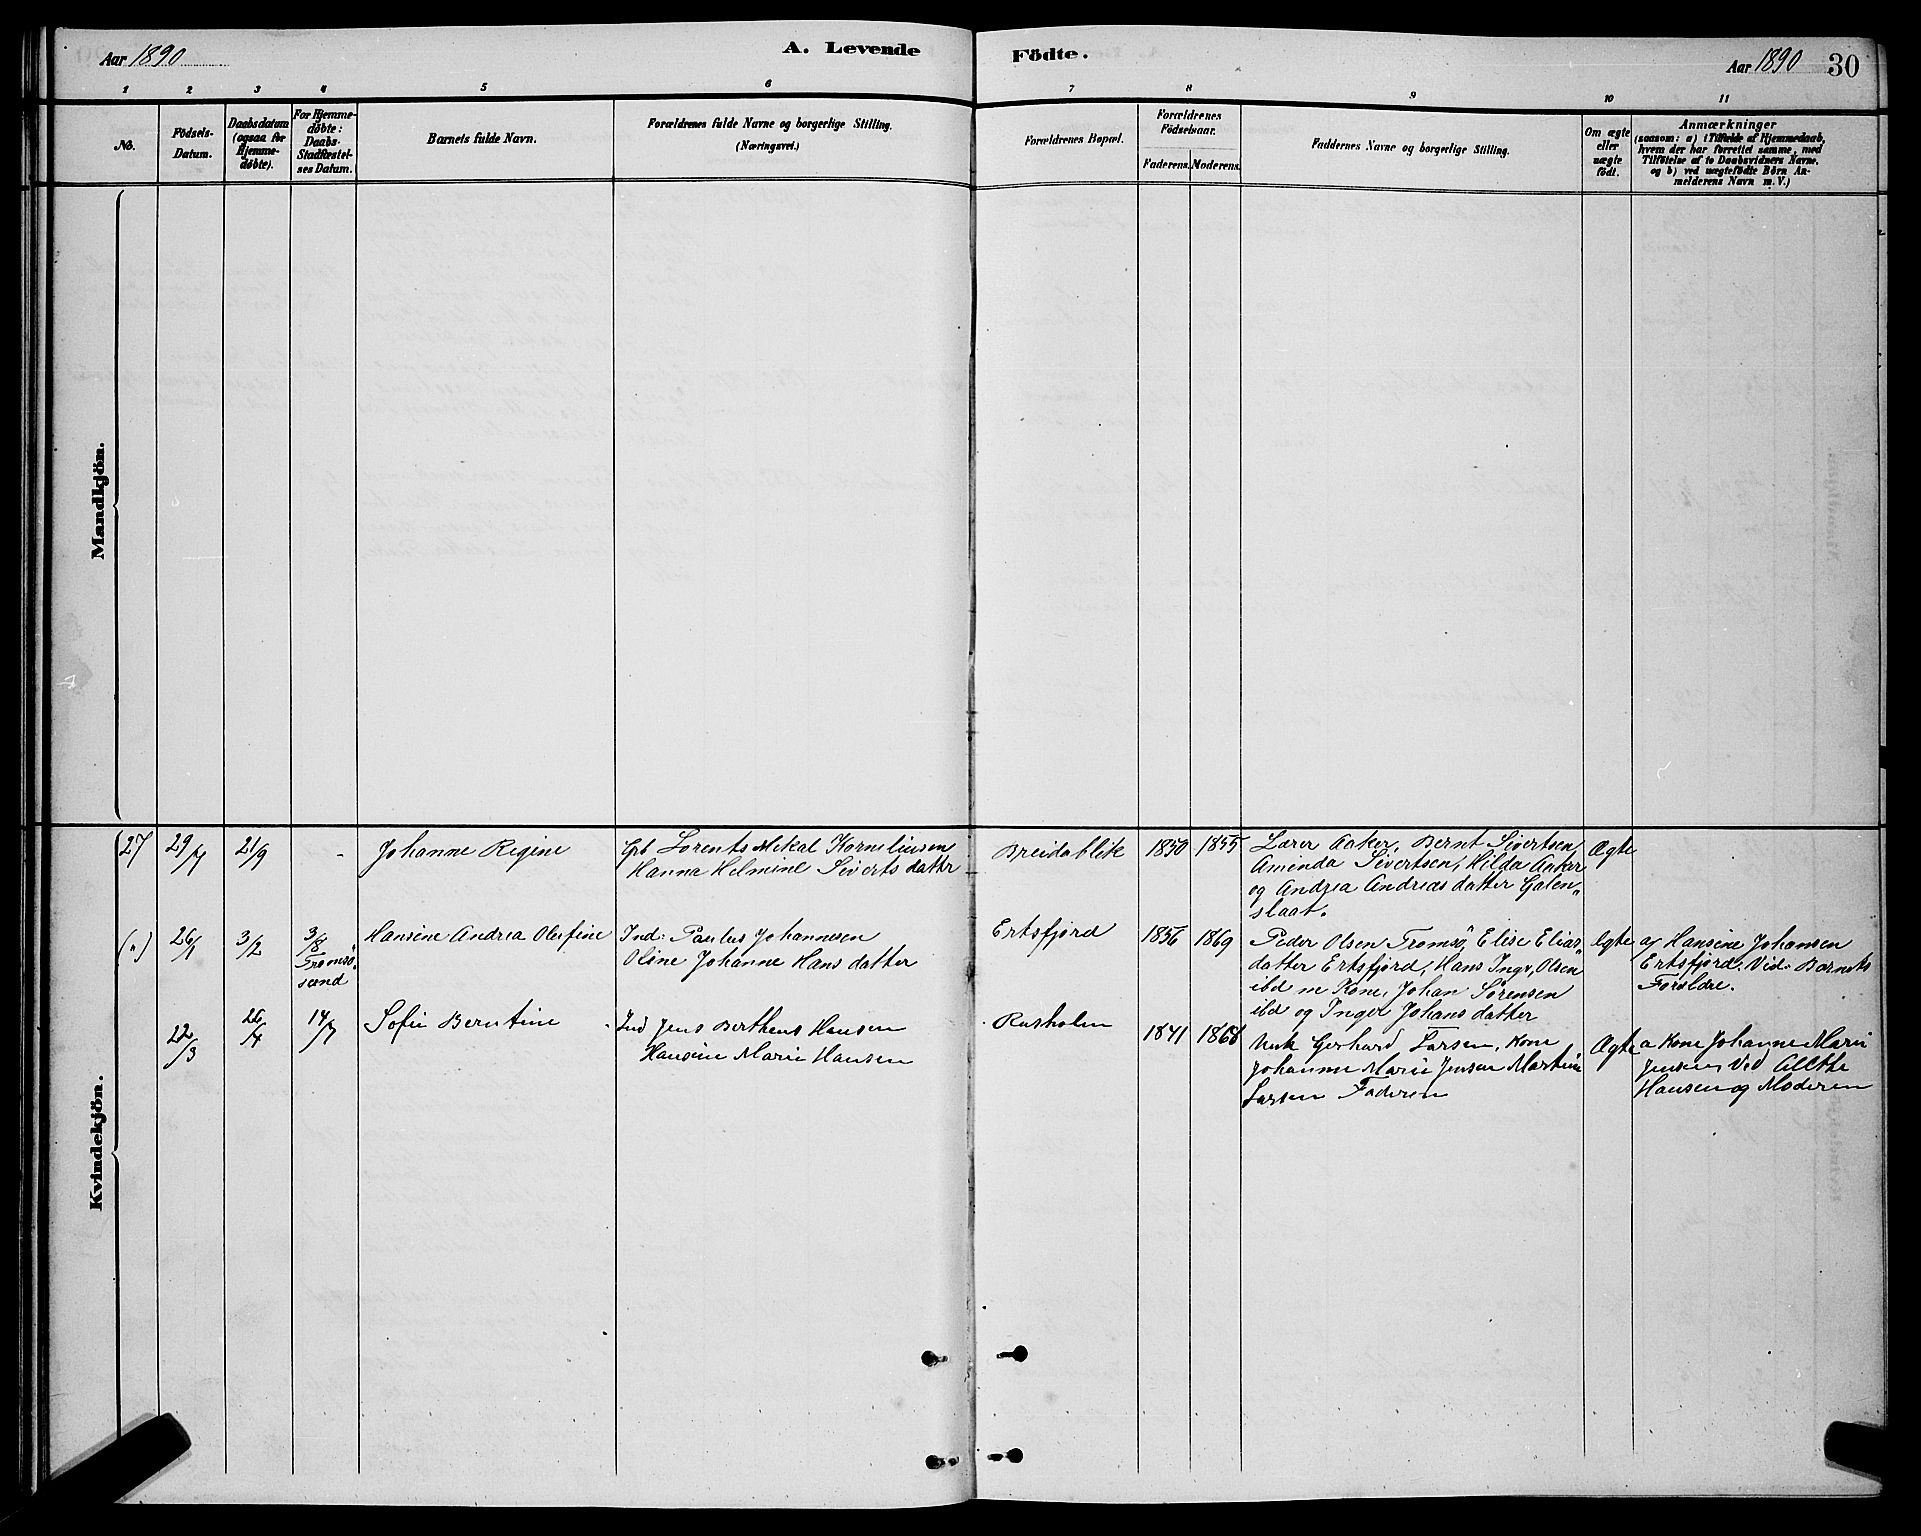 Aar 1890
A. Levende
Födte.
Aar 1890
30
1 2 3 4 5 6 7 8 9 10 11
No.
Födsels-
Datum.
Daabsdatum
(ogsaa for
Hjemme-
döbte).
For Hjemme-
döbte:
Daabs-
Stadfæstel-
ses Datum.
Barnets fulde Navn.
Forældrenes fulde Navne og borgerlige Stilling.
(Næringsvei.)
Forældrenes Bopæl.
Forældrenes
Födselsaar.
Faderens. Moderens.
Faddernes Navne og borgerlige Stilling.
Om ægte
eller
uægte
födt.
Anmærkninger
(saasom: a) i Tilfælde af Hjemmedaab,
hvem der har forrettet samme, med
Tilföielse af to Daabsvidners Navne.
og b) ved uægtefödte Börn An-
melderens Navn m. V.)
Mandkjön.
Kvindekjön.
27
29/7
21/9
-
Johanne Regine
Gb Lorents Mikal Korneliusen
Hanna Helmine Siverts datter
Breidablik
1850
1855
Lærer Aaker, Bernt Sivertsen
Aminda Sivertsen, Hilda Aaker
og Andrea Andreas datter Galen„
slaat.
Ægte
(„)
26/1
3/2
3/8
Tromsö„
sund
Hansine Andrea Olufine
Ind: Paulus Johannesen
Oline Johanne Hans datter
Ertsfjord
1856
1869
Peder Olsen Tromsö, Elise Elias
datter Ertsfjord, Hans Ingv. Olsen
ibd m Kone, Johan Sörensen
ibd og Inger Johans datter
Ægte
af Hansine Johansen
Ertsfjord. Vid. Barnets
Forældre.
22/3
26/4
14/7
Sofie Berntine
Ind Jens Berthens Hansen
Hansine Marie Hansen
Rusholm
1841
1868
Gerhard Larsen, Kone
Johanne Marie Jensen Martine
Larsen Faderen
Ægte
a Kone Johanne Marie
Jensen, Vid
Hansen og Moderen